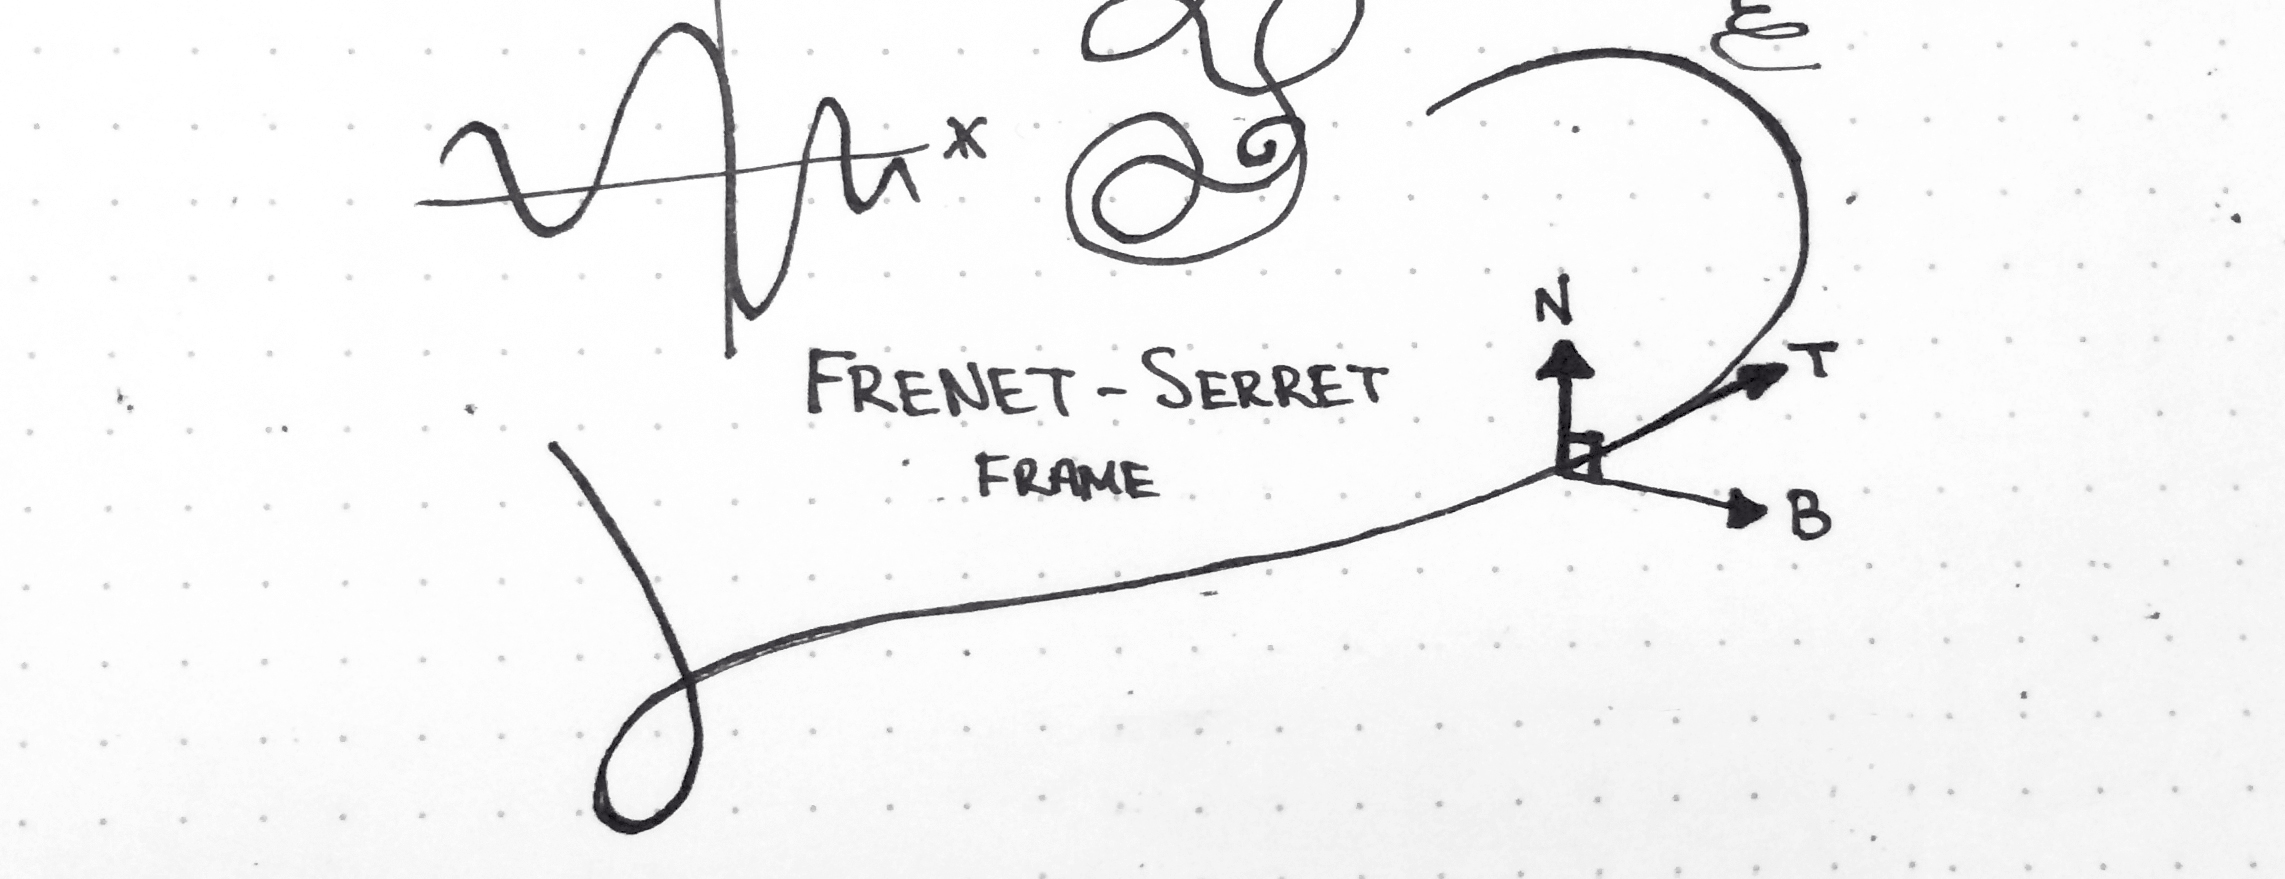 x
N
T
FRENET-SERRET
FRAME
B